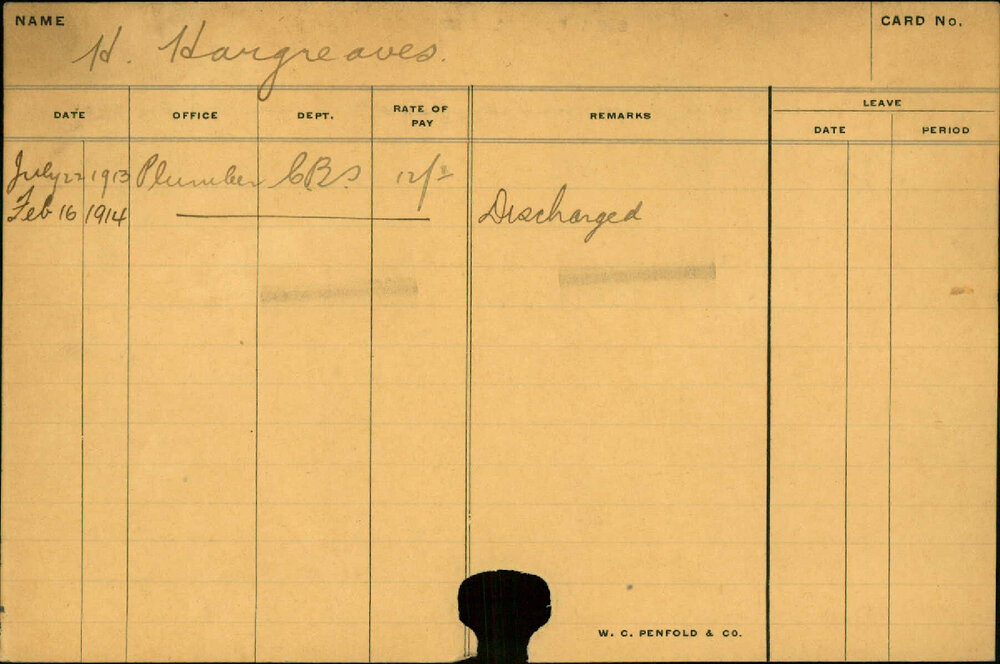 NAME
H. Hargreaves.
CARD No.
DATE OFFICE DEPT. RATE OF PAY REMARKS LEAVE
DATE PERIOD
July 22 1913 Plumber CBS 12/-
Feb 16 1914 Discharged
W. C. PENFOLD & CO.